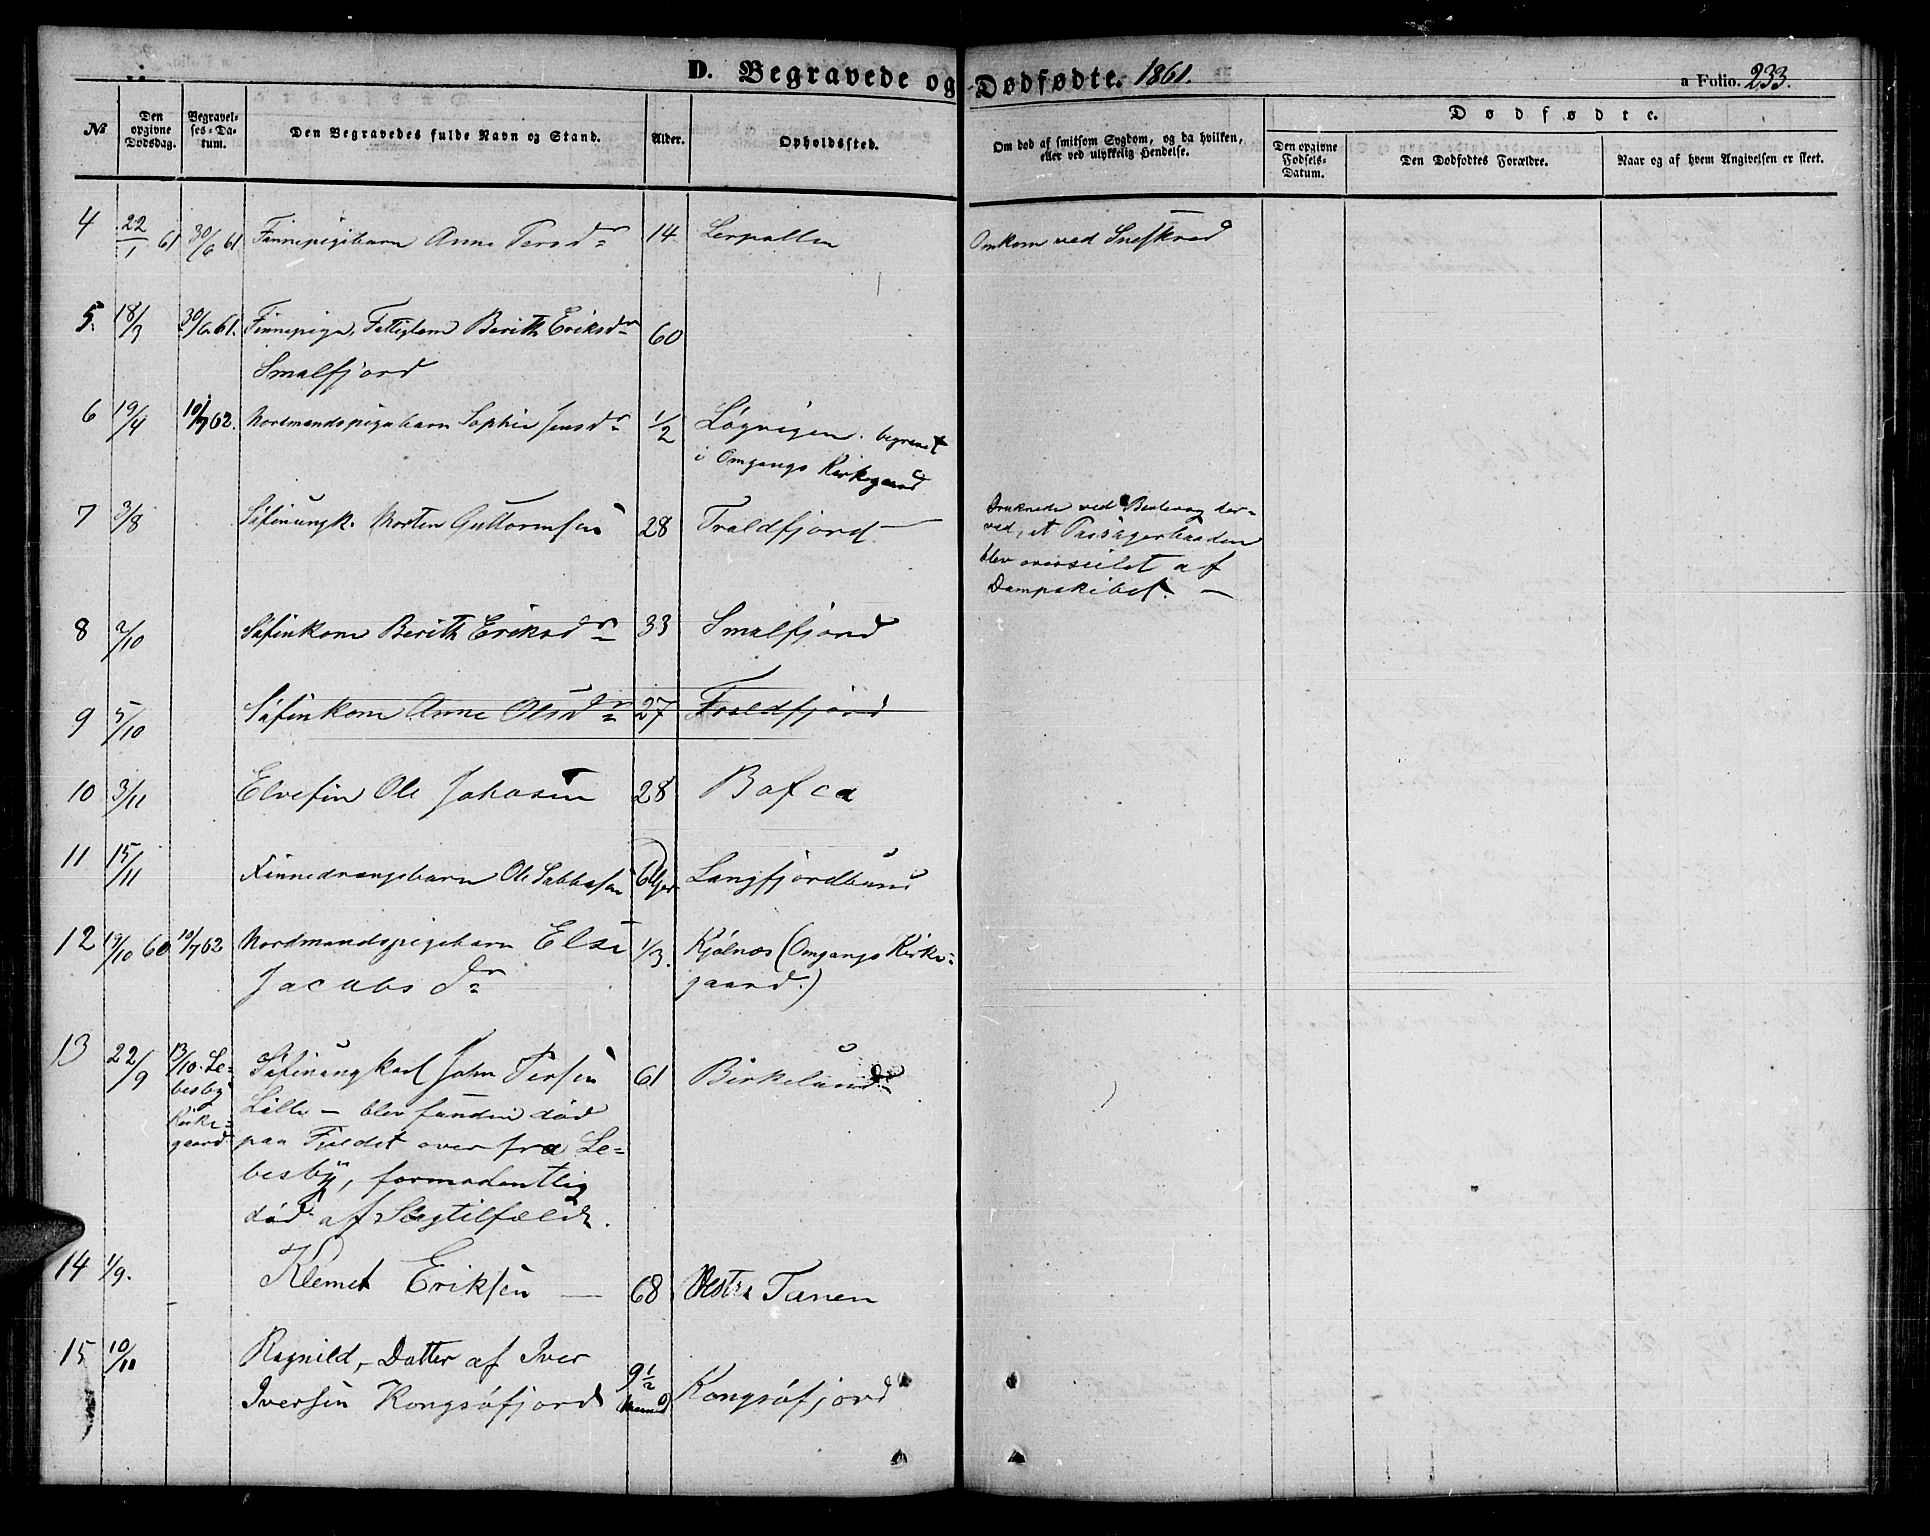 D. Begravede og Dødfødte. 1861.
a Folio. 233.
№
Den opgivne Dødsdag.
Begravelses-Datum.
Den Begravedes fulde Navn og Stand.
Alder.
Opholdssted.
Om død af smitsom Sygdom, og da hvilken, eller ved ulykkelig Hendelse.
Dødfødte.
Den opgivne Fødsels-Datum.
Den Dødfødtes Forældre.
Naar og af hvem Angivelsen er skeet.
4 22/1 61 30/6 61 Finnepigebarn Anne Persdr 14 Lerpollen Omkom ved Sneskred
5. 18/3 30/6 61. Finnepige, Fattiglem Berith Eriksdr 60
Smalfjord
6 19/4 10/7 62. Nordmandspigebarn Sophie Jensdr 1/2 Løgvigen. begravet
i Omgangs Kirkegaard
7 3/8 Søfinungk. Morten Guttormsen 28 Traldfjord — Druknede ved
ved, at Passagerbaaden
blev overseilet af
Dampskibet. —
8 2/10 Søfinkone Berith Eriksdr 33 Smalfjord
9 5/10 Søfinkone Anne Olsdr 27 Traldfjord
10 3/11 Elvefin Ole Johnsen 28 Bafca
11 15/11 Finnedrengebarn Ole Sabbasen 6 Langfjordbund
12 19/10 60 10/7 62 Nordmandspigebarn Else 1/3. Kjølnæs (Omgangs Kirke-
Jacobsdr gaard.)
13 22/9 13/10. Le- Søfinungkarl John Persen 61 Birkelund
besby Lille — blev funden død
Kirke- paa Fjeldet over fra Le-
gaard besby, formodentlig
død af Slagtilfælde.
14 1/9. Klemet Eriksen — 68 Vestre Tanen
15 10/11 Ragnild, Datter af Iver
Iversen Kongsøfjord 9 1/2 Maaned Kongsøfjord